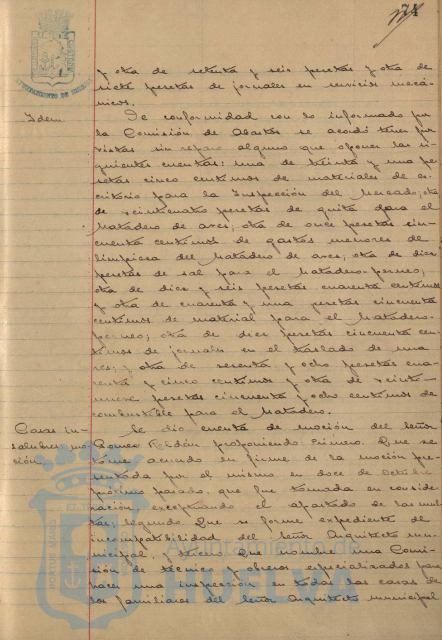 y otra de setenta y seis pesetas y otra de
siete pesetas de jornales en servicios mecá-
nicos.
Idem
De conformidad con lo informado por
la Comisión de Abastos se acordó tener por
vistas sin reparo alguno que oponer las si-
guientes cuentas: una de treinta y una pe-
setas cinco centimos de materiales de es-
critorio para la Inspección del Mercado; otra
de veinticuatro pesetas de guita para el
Matadero de aves; otra de once pesetas cin-
cuenta centimos de gastos menores de
limpieza del Matadero de aves; otra de diez
pesetas de sal para el Matadero-porcino;
otra de diez y seis pesetas cuarenta centimos
y otra de cuarenta y una pesetas cincuenta
centimos de material para el Matadero-
porcino; otra de diez pesetas cincuenta cen-
timos de jornales en el traslado de una
res; y otra de sesenta y ocho pesetas cua-
renta y cinco centimos y otra de veinti-
nueve pesetas cincuenta y ocho centimos de
combustible para el Matadero.
Casas in-
salubres mo-
ción
Se dio cuenta de moción del señor
Gomez Roldán proponiendo: Primero. Que se
tome acuerdo en firme de la moción pre-
sentada por el mismo en doce de Octubre
próximo pasado, que fue tomada en conside-
ración, exceptuando el apartado de las mul-
tas; segundo. Que se forme expediente de
incompatibilidad del señor Arquitecto mu-
nicipal, y tercero. Que nombre una Comi-
sión de técnicos y obreros especializados para
hacer una inspección en todas las casas de
los familiares del señor Arquitecto municipal
AYUNTAMIENTO DE HUELVA
Ayuntamiento de
HUELVA